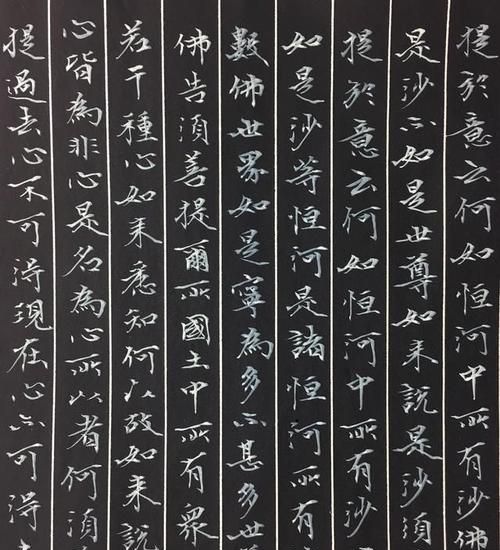 提於意云何如恒河中所有沙佛
是沙不如是世尊如来說是沙須
提於意云何如恒河中所有沙
如是沙等恒河是諸恒河所有
數佛世界如是寧為多不甚多世
佛告須善提爾所國土中所有衆
若干種心如来悉知何以故如来說
心皆為非心是名為心所以者何須
提過去心不可得現在心不可得